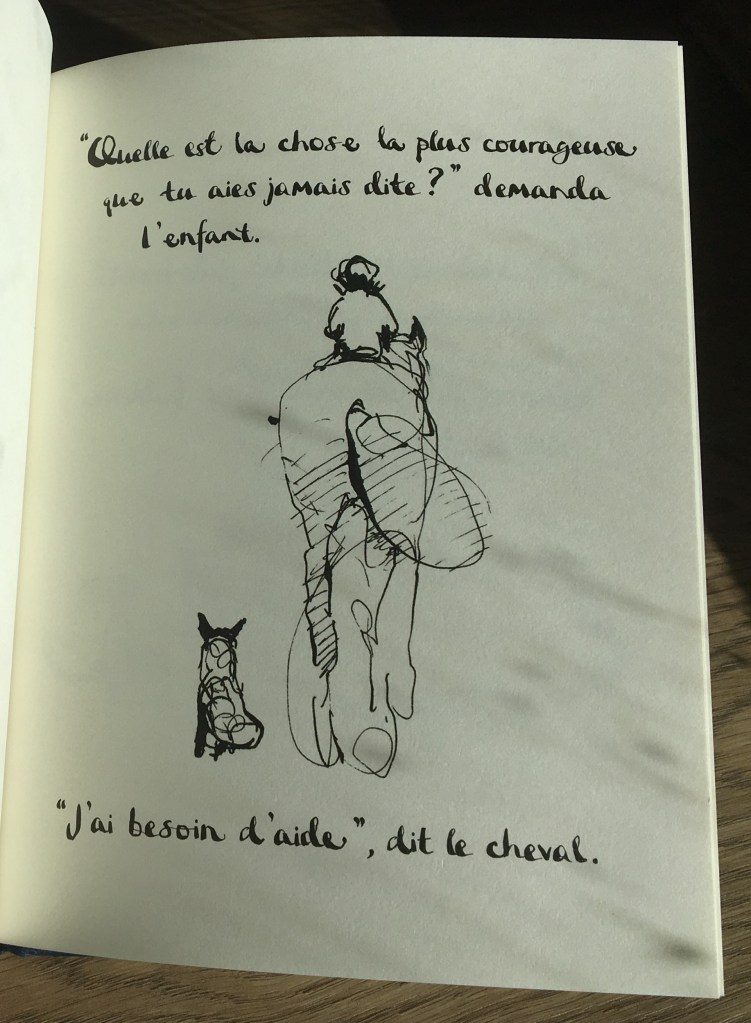 "Quelle est la chose la plus courageuse
que tu aies jamais dite ?" demanda
l'enfant.
"J'ai besoin d'aide", dit le cheval.